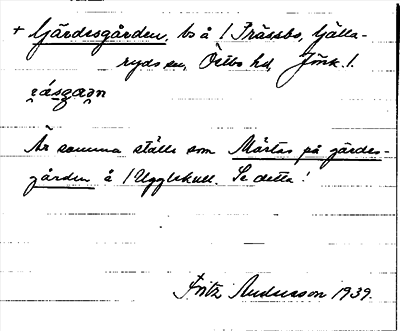 + Gjärdesgården, bs å 1 Prässbo, Gjälla-
ryds sn, Östbo hd, Jönk. l.
Är samma ställe som Märtas på gärdes-
gården å 1 Ugglekull. Se detta!
Fritz Andersson 1939.